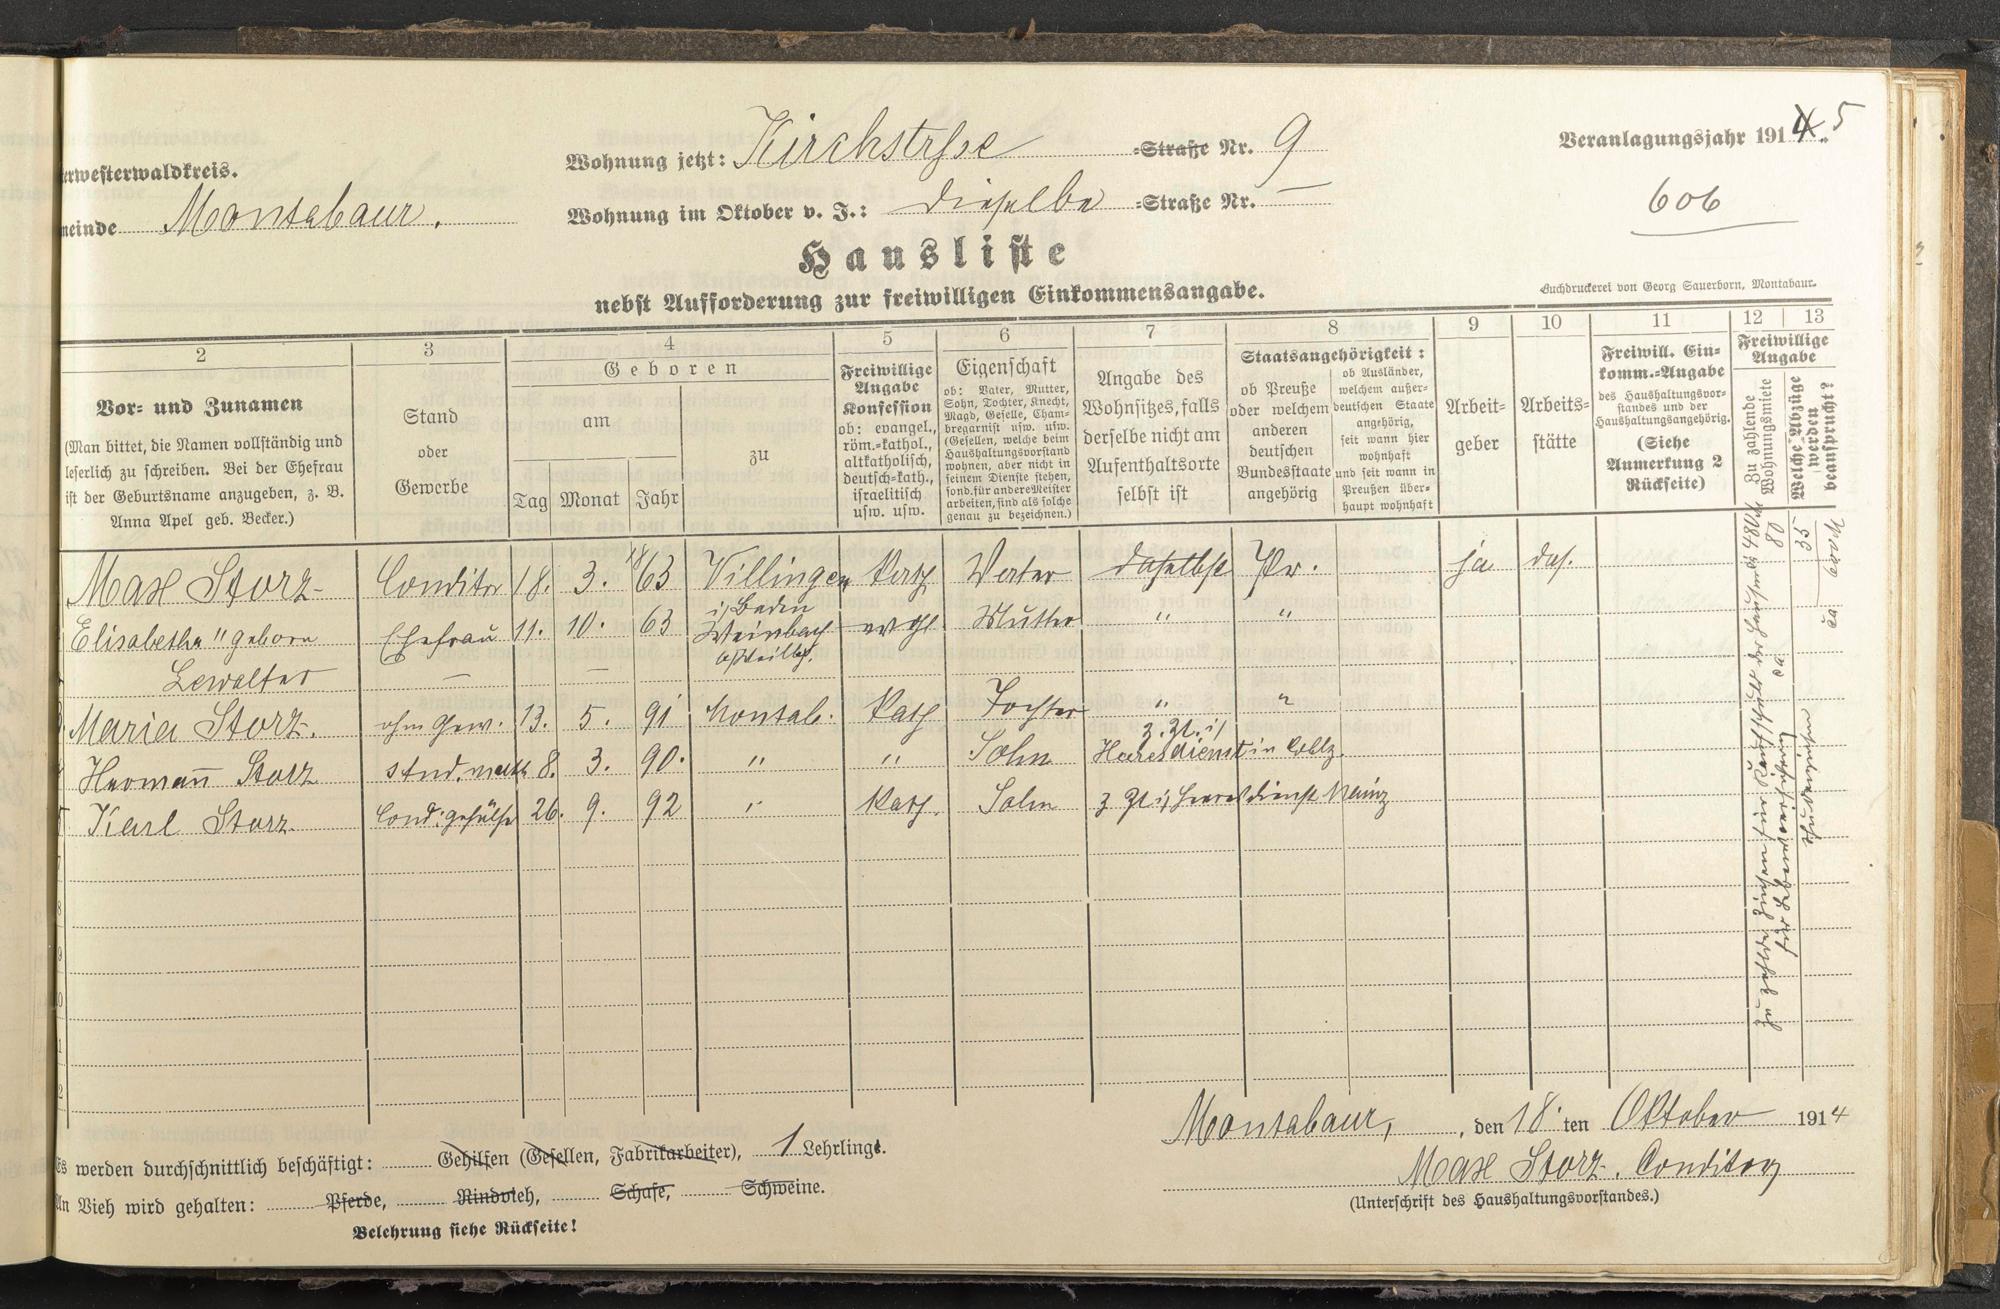 erwesterwaldkreis.
meinde Montabaur.
Wohnung jetzt: Kirchstrsse =Straße Nr. 9
Wohnung im Oktober v. J.: dieselbe =Straße Nr. —
Veranlagungsjahr 1914 5
606
Hausliste
nebst Aufforderung zur freiwilligen Einkommensangabe.
Buchdruckerei von Georg Sauerborn, Montabaur.
2 3 4 5 6 7 8 9 10 11 12 13
Vor- und Zunamen
(Man bittet, die Namen vollständig und
leserlich zu schreiben. Bei der Ehefrau
ist der Geburtsname anzugeben, z. B.
Anna Apel geb. Becker.)
Stand
oder
Gewerbe
Geboren
am
zu
Tag Monat Jahr
Freiwillige
Angabe
Konfession
ob: evangel.,
röm.=kathol.,
altkatholisch,
deutsch=kath.,
israelitisch
usw. usw.
Eigenschaft
ob: Vater, Mutter,
Sohn, Tochter, Knecht,
Magd, Geselle, Cham-
bregarnist usw. usw.
(Gesellen, welche beim
Haushaltungsvorstand
wohnen, aber nicht in
seinem Dienste stehen,
sond. für andere Meister
arbeiten, sind als solche
genau zu bezeichnen.)
Angabe des
Wohnsitzes, falls
derselbe nicht am
Aufenthaltsorte
selbst ist
Staatsangehörigkeit:
ob Preuße
oder welchem
anderen
deutschen
Bundesstaate
angehörig
ob Ausländer,
welchem außer-
deutschen Staate
angehörig,
seit wann hier
wohnhaft
und seit wann in
Preußen über-
haupt wohnhaft
Arbeit-
geber
Arbeits-
stätte
Freiwill. Ein-
komm.=Angabe
des Haushaltungsvor-
standes und der
Haushaltungsangehörig.
(Siehe
Anmerkung 2
Rückseite)
Freiwillige
Angabe
Zu zahlende
Wohnungsmiete
Welche Abzüge
werden
beansprucht?
Max Storz Conditor 18. 3. 1863 Villingen i/Baden Kath Vater daselbst Pr. ja das.
Elisabetha " geborn Ehefrau 11. 10. 63 Weinbach evgl Mutter " "
Lewalter — —
Maria Storz. ohn Gew. 13. 5. 91 Montab. Kath Tochter " "
Hermañ Storz stud. math 8. 3. 90. " " Sohn z. Zt. i/ Heeresdienst in Coblz.
Karl Storz Cond: gehülfe 26. 9. 92 " Kath. Sohn z Zt i/ Heeresdienst Mainz
7
8
9
10
1
2
Es werden durchschnittlich beschäftigt: Gehilfen (Gesellen, Fabrikarbeiter), 1 Lehrlinge.
An Vieh wird gehalten: Pferde, Rindvieh, Schafe, Schweine.
Belehrung siehe Rückseite!
Montabaur, , den 18. ten Oktober 1914
Max Storz. Conditor
(Unterschrift des Haushaltungsvorstandes.)